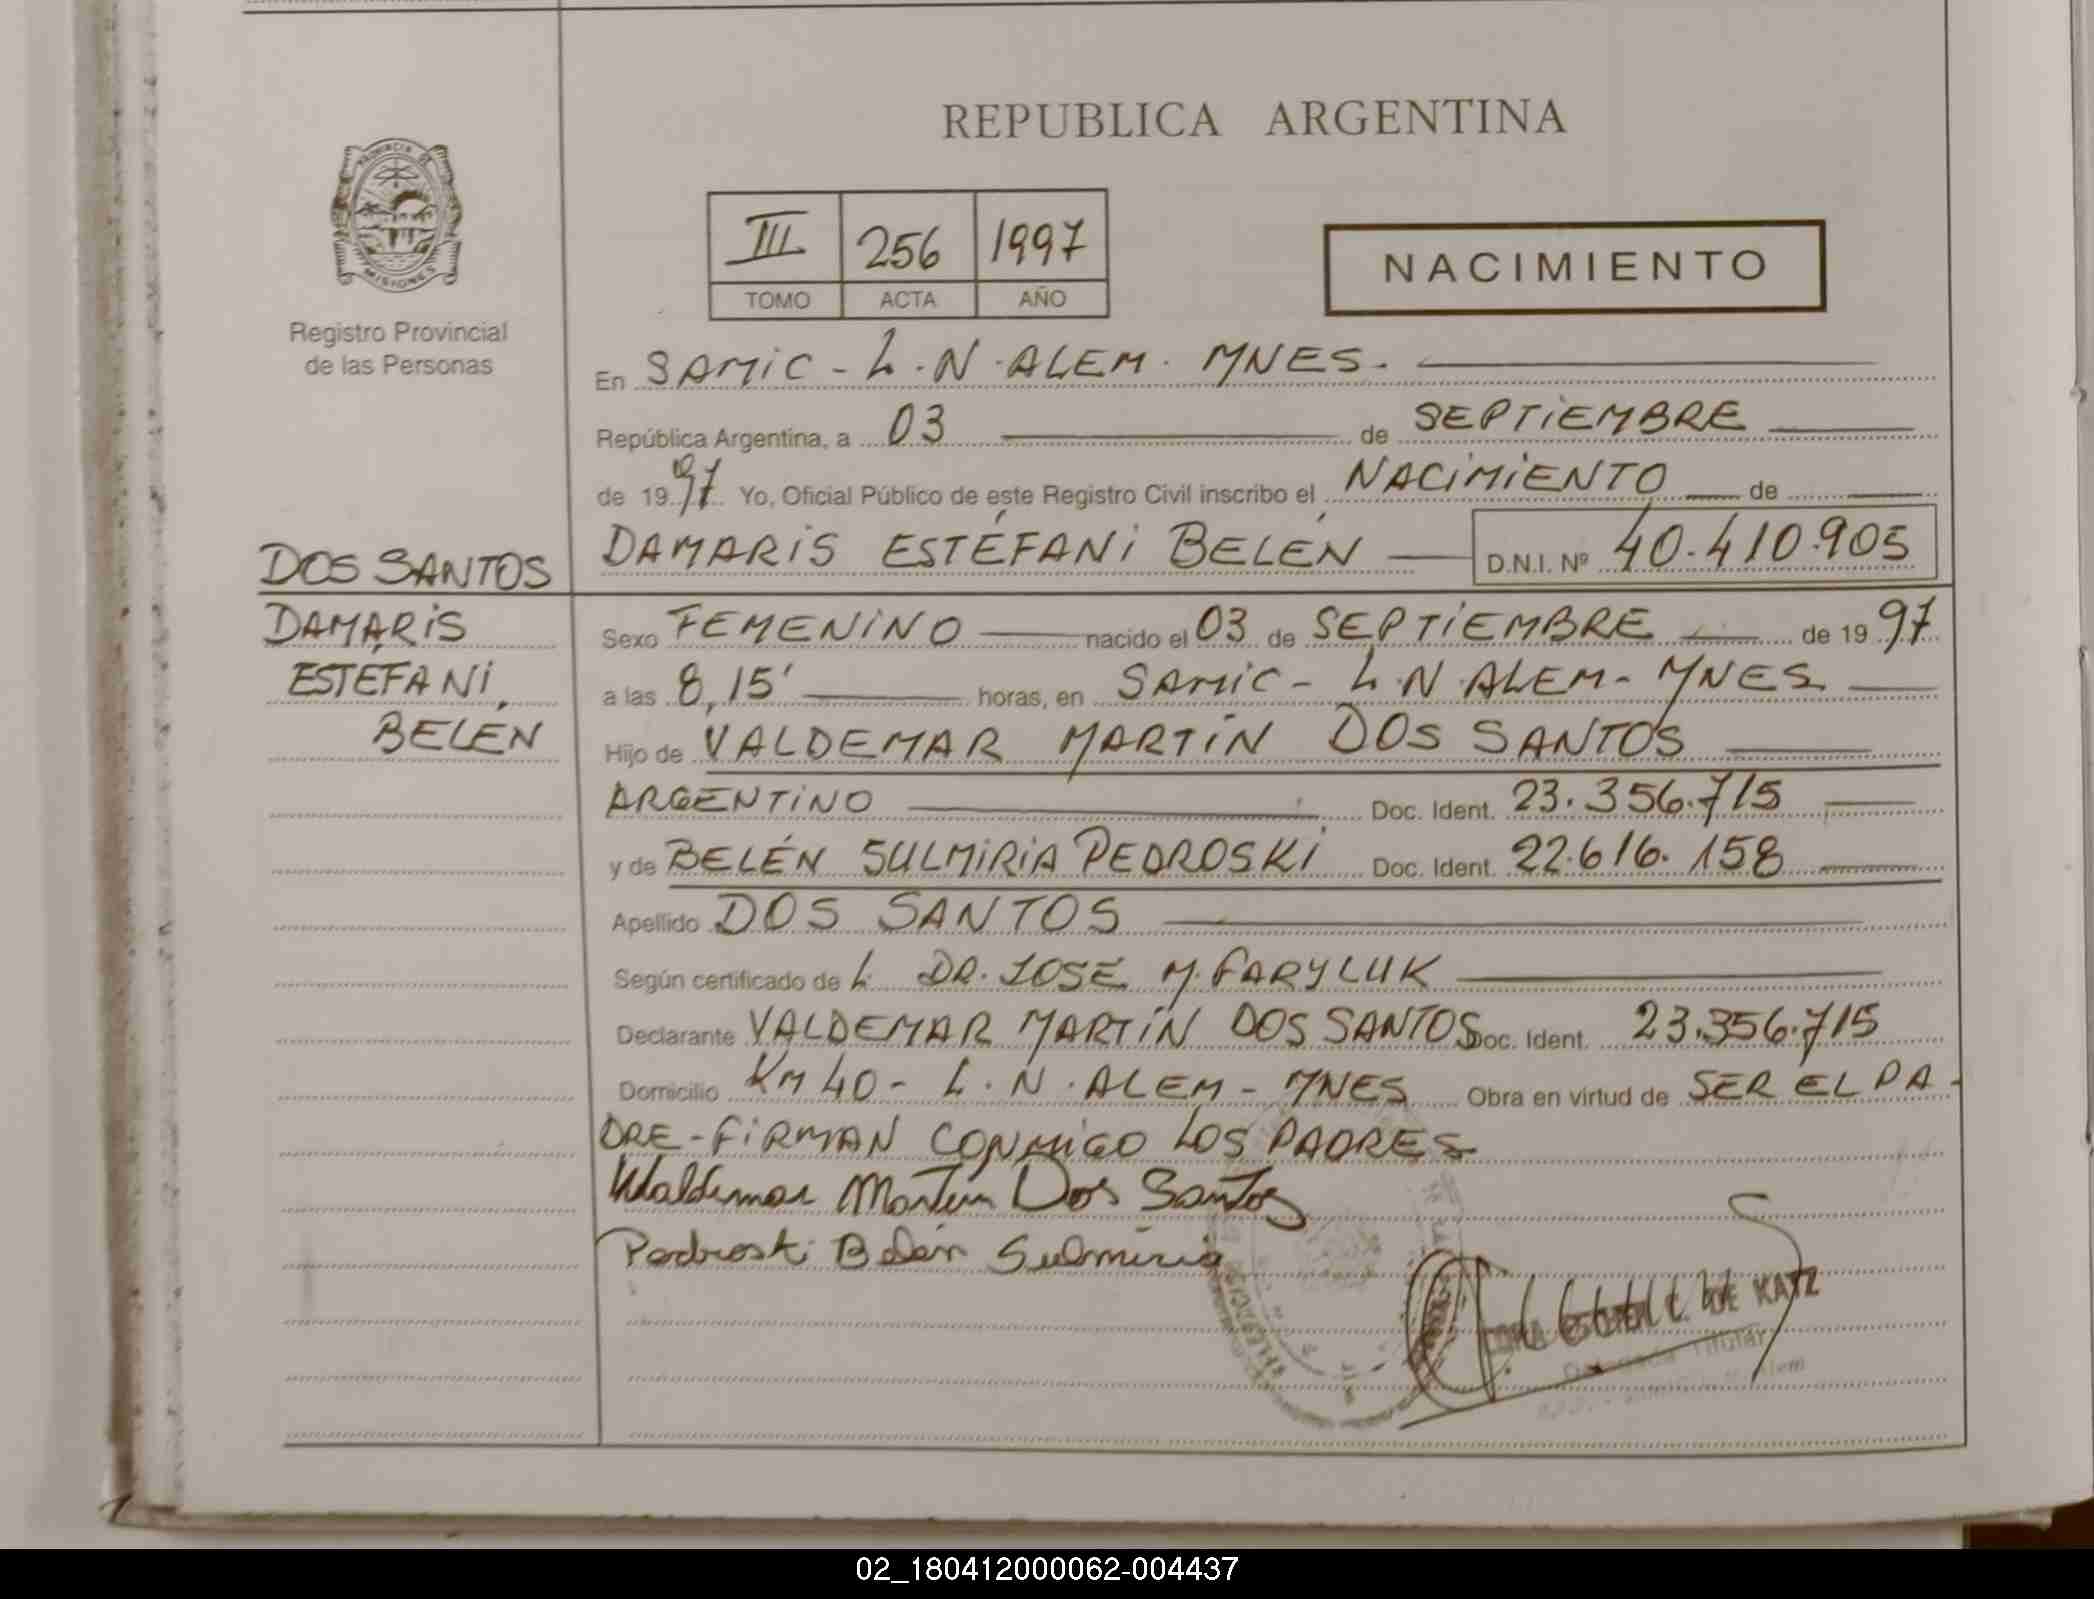 REPUBLICA ARGENTINA
PROVINCIA DE
MISIONES
Registro Provincial
de las Personas
III 256 1997
TOMO ACTA AÑO
NACIMIENTO
En SAMIC - L.N.ALEM. MNES.
República Argentina, a 03 de SEPTIEMBRE
de 1997 Yo, Oficial Público de este Registro Civil inscribo el NACIMIENTO de
DAMARIS ESTÉFANI BELÉN D.N.I. Nº 40.410.905
DOS SANTOS
DAMARIS
ESTÉFANI
BELÉN
Sexo FEMENINO nacido el 03 de SEPTIEMBRE de 1997
a las 8,15' horas, en SAMIC - L.N.ALEM - MNES
Hijo de VALDEMAR MARTÍN DOS SANTOS
ARGENTINO Doc. Ident. 23.356.715
y de BELÉN SULMIRIA PEDROSKI Doc. Ident. 22.616.158
Apellido DOS SANTOS
Según certificado de L. DR. JOSE M. FARYLUK
Declarante VALDEMAR MARTÍN DOS SANTOS Doc. Ident. 23.356.715
Domicilio KM 40 - L.N.ALEM - MNES Obra en virtud de SER EL PA-
DRE - FIRMAN CONMIGO LOS PADRES
Waldemar Martin Dos Santos
Pedroski Belén Sulmiria
DE KATZ
Titular
02_180412000062-004437